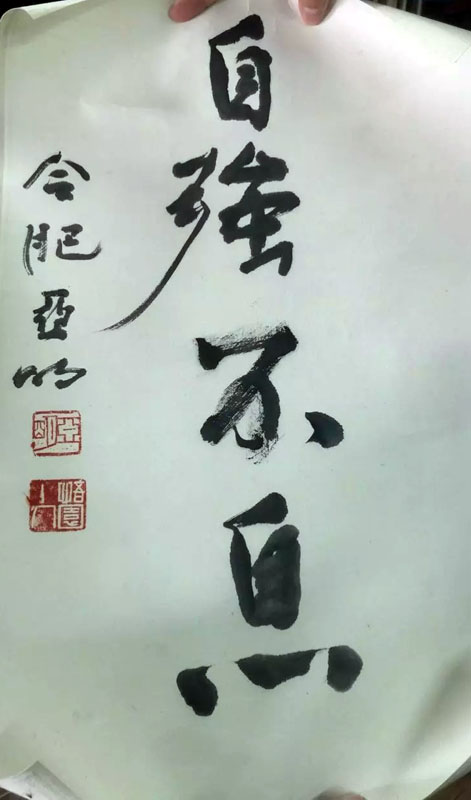 自強不息
合肥亞明
亞明